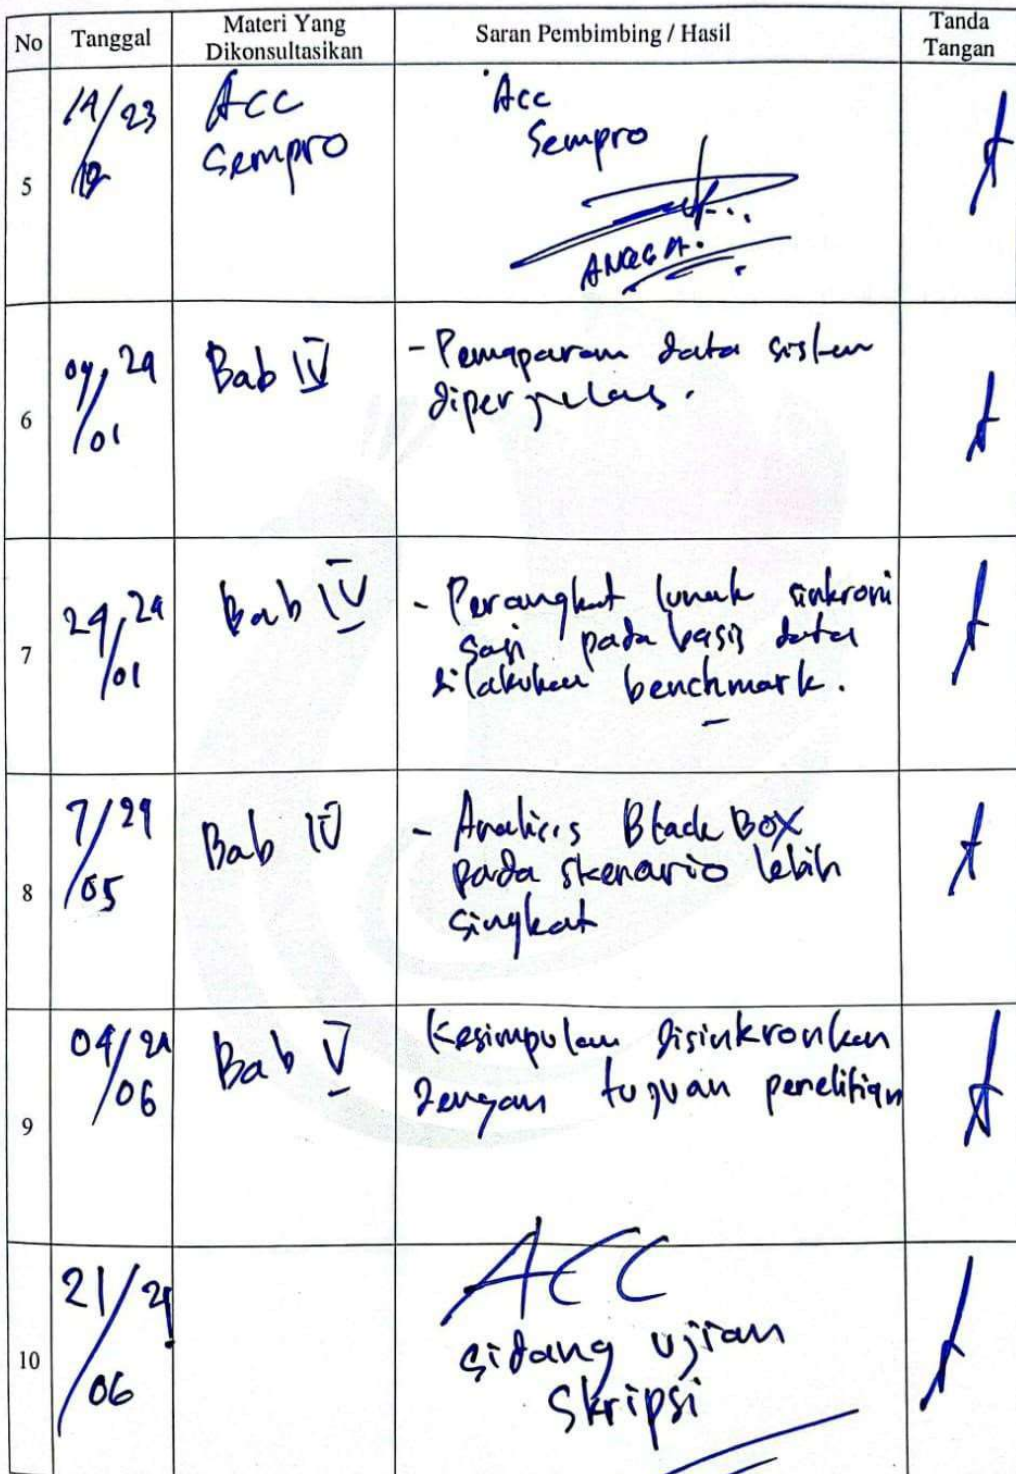 No Tanggal Materi Yang Dikonsultasikan Saran Pembimbing / Hasil Tanda Tangan
5 14/23 12 Acc Sempro Acc Sempro
ANGGA.
6 09/24 01 Bab IV - Pemaparan data sistem
diperjelas.
7 24/24 01 Bab IV - Perangkat lunak sinkroni
sasi pada basis data
dilakukan benchmark.
8 7/24 05 Bab IV - Analisis Black Box
pada skenario lebih
singkat
9 04/24 06 Bab V Kesimpulan disinkronkan
dengan tujuan penelitian
10 21/24 06 ACC
sidang ujian
Skripsi